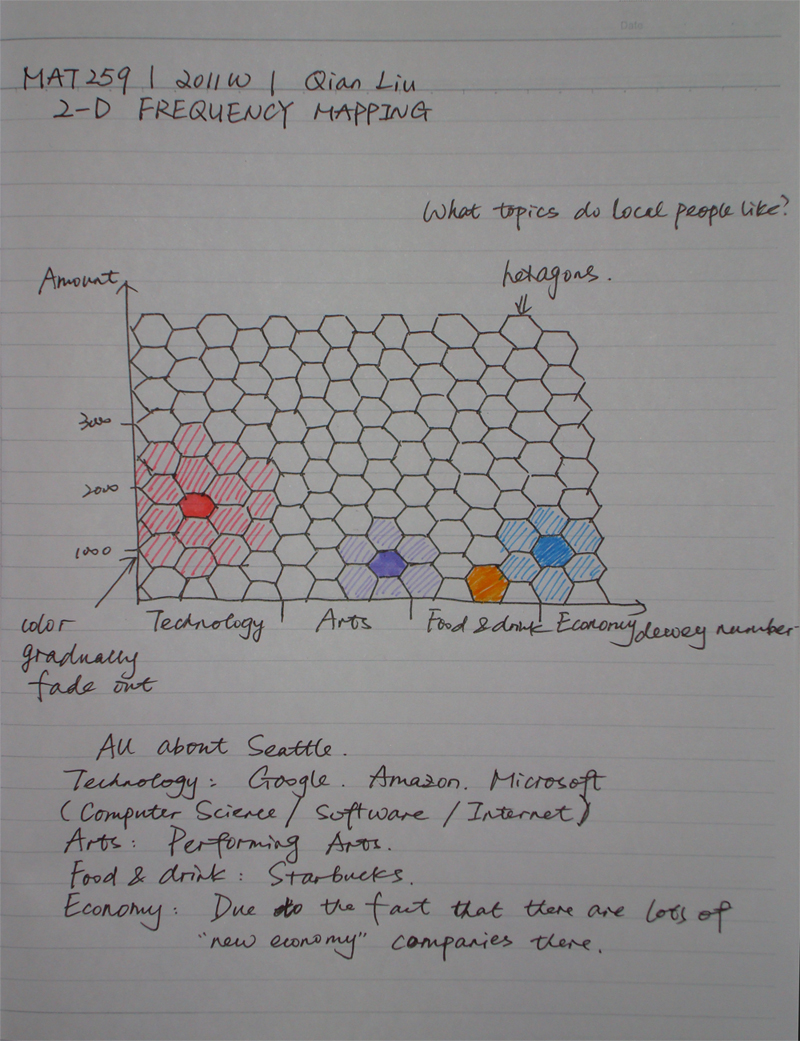 Date
MAT259 | 2011W | Qian Liu
2-D FREQUENCY MAPPING
What topics do local people like?
Amount
hexagons.
3000
2000
1000
Technology
Arts
Food & drink
Economy
dewey number
color
gradually
fade out
All about Seattle.
Technology: Google. Amazon. Microsoft
(Computer Science / Software / Internet)
Arts: Performing Arts.
Food & drink: Starbucks.
Economy: Due to the fact that there are lots of
"new economy" companies there.